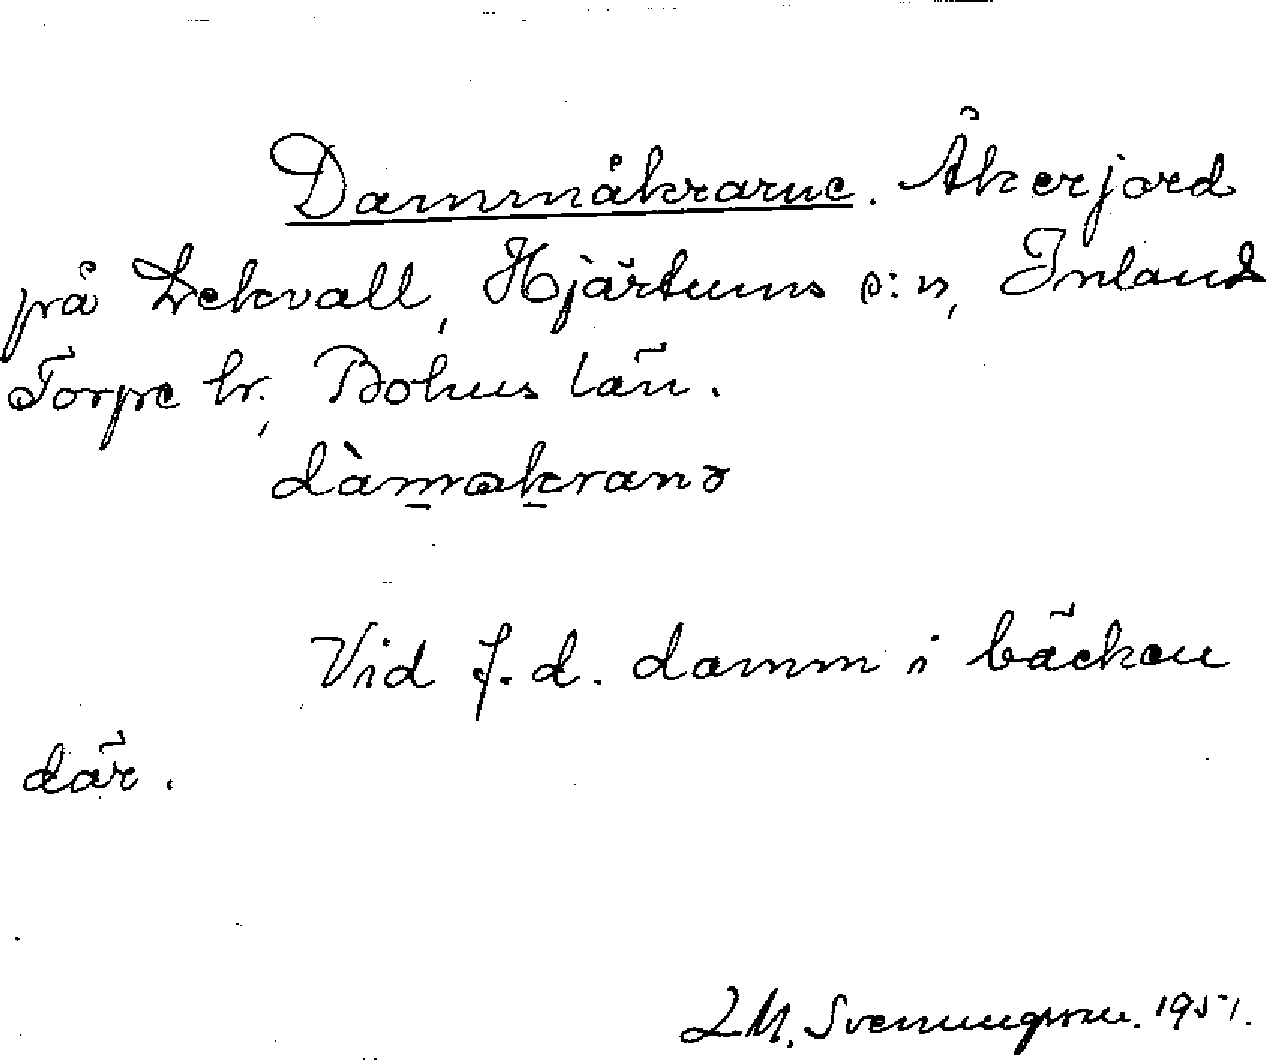 Dammåkrarne. Åkerjord
på Lekvall, Hjärtums s:n, Inlands
Torpe hr., Bohus län.
dàmakranə
Vid f.d. damm i bäcken
där.
I.M. Svenungsson. 1951.